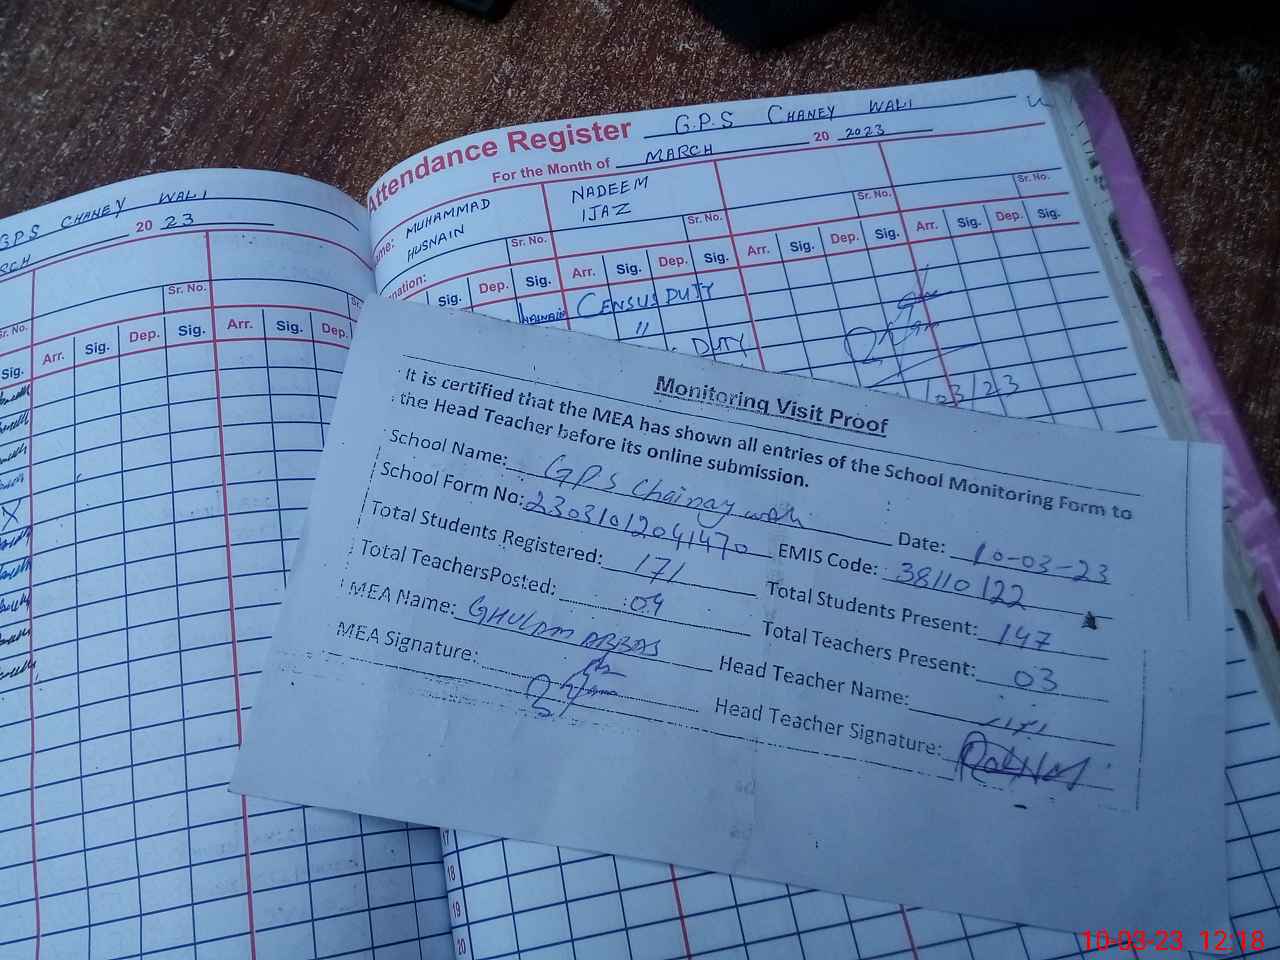 GPS CHANEY WALI
RCH 20 23
Sr. No.
Sr. No.
Sig. Arr. Sig. Dep. Sig. Arr. Sig. Dep.
Attendance Register G.P.S CHANEY WALI
For the Month of MARCH 20 2023
MUHAMMAD HUSNAIN
NADEEM IJAZ
Sr. No. Sr. No. Sr. No. Sr. No.
Sig. Dep. Sig. Arr. Sig. Dep. Sig. Arr. Sig. Dep. Sig. Arr. Sig. Dep. Sig.
CENSUS DUTY
"
DUTY
03/23
Monitoring Visit Proof
It is certified that the MEA has shown all entries of the School Monitoring Form to
the Head Teacher before its online submission.
School Name: GPS Chainay wali
Date: 10-03-23
School Form No: 23031012041470
EMIS Code: 38110122
Total Students Registered: 171
Total Students Present: 147
Total TeachersPosted: 04
Total Teachers Present: 03
MEA Name: GHULAM ABBAS
Head Teacher Name:
MEA Signature:
Head Teacher Signature:
17
18
19
20
10-03-23 12:18